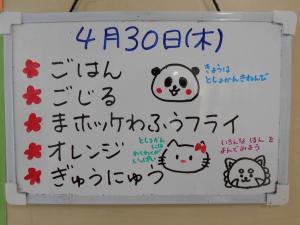 4月30日(木)
ごはん
ごじる
まホッケわふうフライ
オレンジ
ぎゅうにゅう
きょうは
としょかんきねんび
としょかん
には
わくわくが
いっぱい
いろんな ほん を
よんでみよう